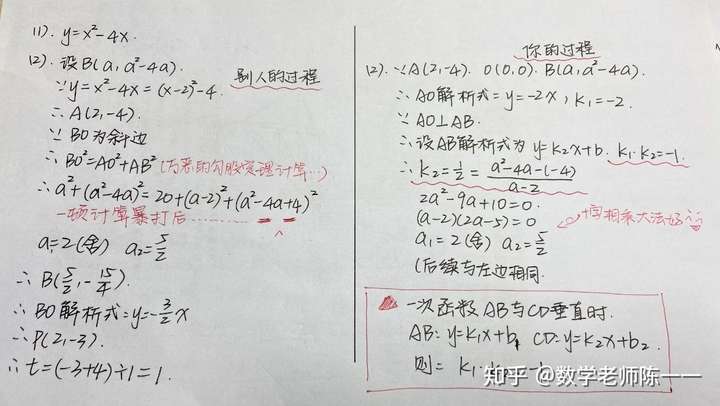 (1). y=x²-4x.
(2). 设B(a, a²-4a).
别人的过程
∵y=x²-4x=(x-2)²-4.
∴A(2,-4).
∵BO为斜边
∴BO²=AO²+AB² (万恶的勾股定理计算…)
∴a²+(a²-4a)²=20+(a-2)²+(a²-4a+4)²
一顿计算暴打后………
a₁=2(舍) a₂=5/2
∴B(5/2,-15/4).
∴BO解析式=y=-3/2x
∴P(2,-3).
∴t=(-3+4)÷1=1.
你的过程
(2). ∵A(2,-4). O(0,0). B(a,a²-4a).
∴AO解析式=y=-2x, k₁=-2.
∵AO⊥AB.
∴设AB解析式为y=k₂x+b. k₁·k₂=-1.
∴k₂=1/2=(a²-4a-(-4))/(a-2)
2a²-9a+10=0.
(a-2)(2a-5)=0
十字相乘大法好
a₁=2(舍) a₂=5/2
(后续与左边相同.
一次函数AB与CD垂直时.
AB: y=k₁x+b₁ CD: y=k₂x+b₂.
则= k₁·
知乎 @数学老师陈一一